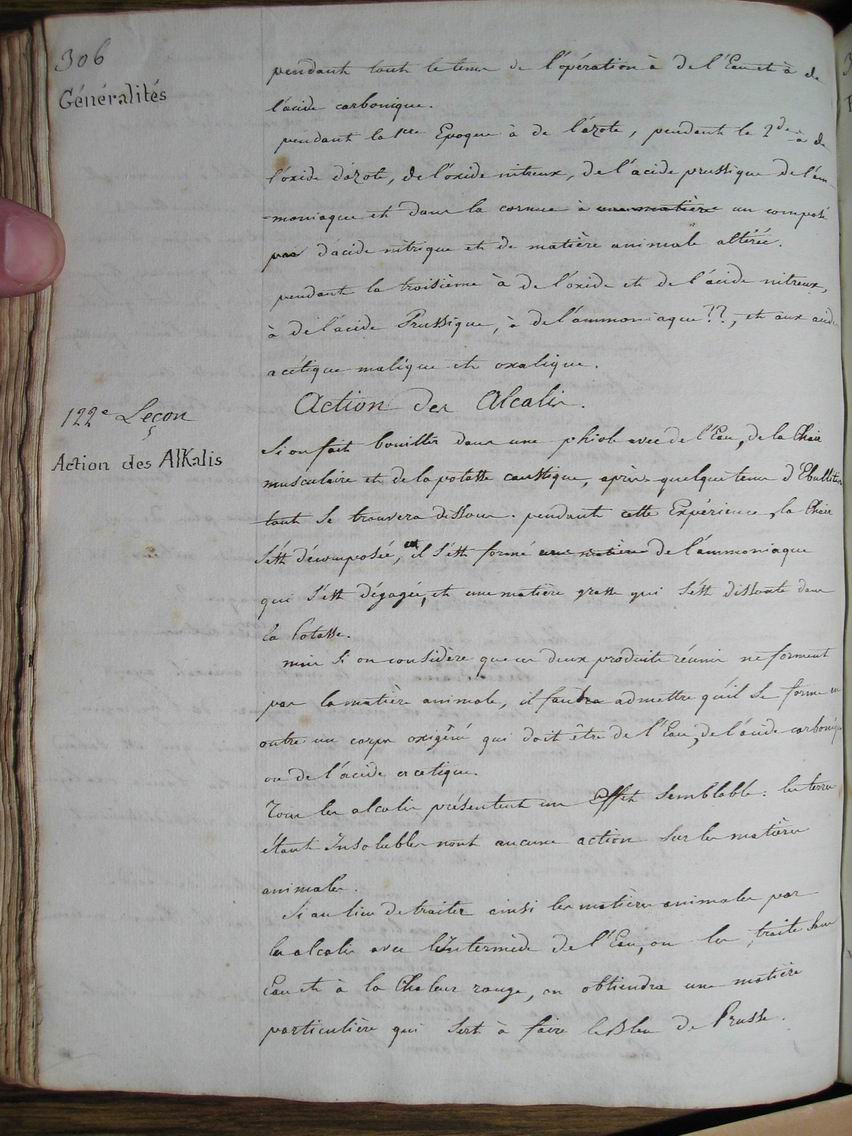 306
Généralités
pendant tout le tems de l'opération à de l'Eau et à de
l'acide carbonique.
pendant la 1ere Epoque à de l'azote, pendant le 2de à de
l'oxide d'azote, de l'oxide nitreux, de l'acide prussique de l'am-
-moniaque et dans la cornue à une matière un composé
pas d'acide nitrique et de matière animale altérée.
pendant la troisième à de l'oxide et de l'acide nitreux,
à de l'acide Prussique, à de l'ammoniaque ??, et aux acides
acétique malique et oxalique.
122e Leçon
Action des Alcalis.
Action des AlKalis
Si on fait bouillir dans une phiole avec de l'Eau, de la Chair
musculaire et de la potasse caustique, après quelque tems d'Ebullition
tout se trouvera dissous. pendant cette Expérience, la Chair
s'est décomposée, et il s'est formé une matière de l'ammoniaque
qui s'est dégagée, et une matière grasse qui s'est dissoute dans
la Potasse.
mais si on considère que ces deux produits réunis ne forment
pas la matière animale, il faudra admettre qu'il se forme en
outre un corps oxigéné qui doit être de l'Eau, de l'acide carbonique
ou de l'acide acetique.
Tous les alcalis présentent un effet semblable: les terres
étant Insolubles n'ont aucune action sur les matières
animales.
Si au lieu de traiter ainsi les matières animales par
les alcalis avec l'Intermède de l'Eau, on les traite sans
Eau et à la Chaleur rouge, on obtiendra une matière
particulière qui sert à faire le Bleu de Prusse.